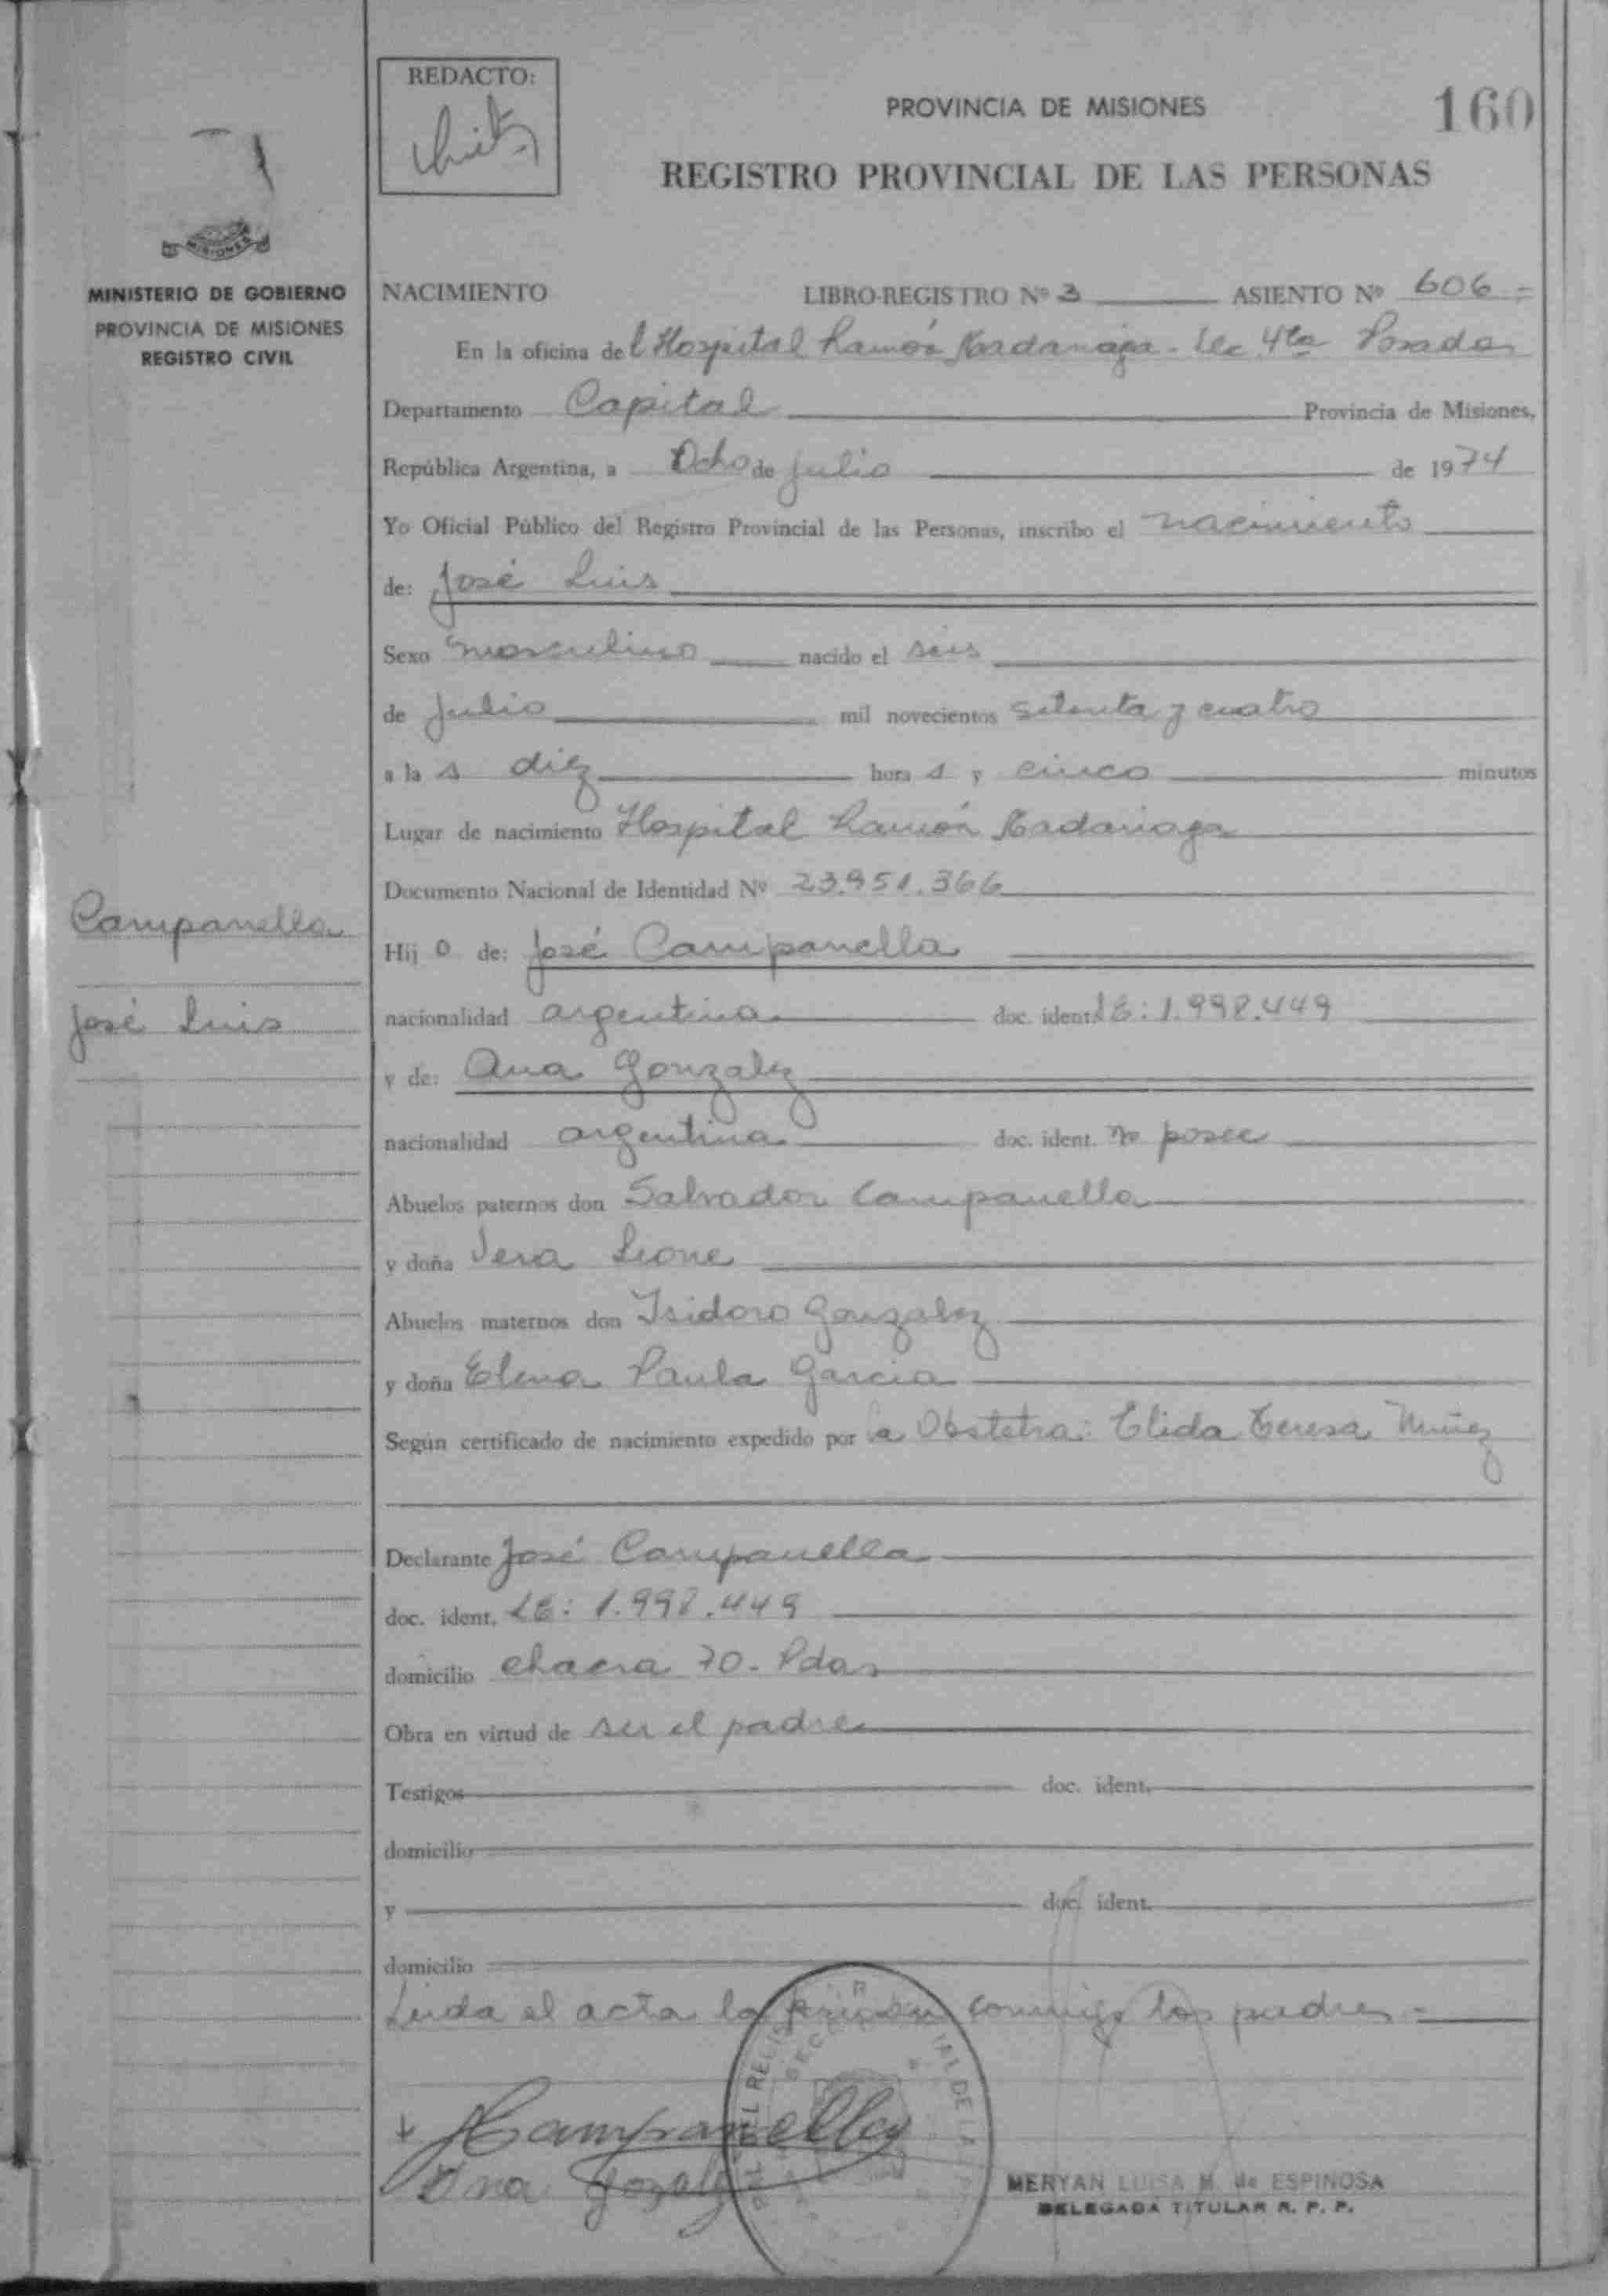 REDACTO:
PROVINCIA DE MISIONES
160
REGISTRO PROVINCIAL DE LAS PERSONAS
MISIONES
MINISTERIO DE GOBIERNO
PROVINCIA DE MISIONES
REGISTRO CIVIL
NACIMIENTO LIBRO-REGISTRO Nº 3 ASIENTO Nº 606 =
En la oficina del Hospital Ramón Madariaga - Sec 4ta Posadas
Departamento Capital Provincia de Misiones,
República Argentina, a Ocho de julio de 1974
Yo Oficial Público del Registro Provincial de las Personas, inscribo el nacimiento
de: José Luis
Sexo masculino nacido el seis
de julio mil novecientos setenta y cuatro
a la s diez hora s y cinco minutos
Lugar de nacimiento Hospital Ramón Madariaga
Documento Nacional de Identidad Nº 23.951.366
Campanella
Hij o de: José Campanella
José Luis
nacionalidad argentina doc. ident. LE: 1.998.449
y de: Ana Gonzalez
nacionalidad argentina doc. ident. no posee
Abuelos paternos don Salvador Campanella
y doña Vera Leone
Abuelos maternos don Isidoro Gonzalez
y doña Elena Paula Garcia
Según certificado de nacimiento expedido por la Obstetra: Elida Teresa Nuñez
Declarante José Campanella
doc. ident. LE: 1.998.449
domicilio chacra 70 - Pdas
Obra en virtud de ser el padre
Testigos doc. ident.
domicilio
y doc. ident.
domicilio
Leida el acta la firman conmigo los padres =
Campanella
Ana Gozalez
MERYAN LUISA M. de ESPINOSA
DELEGADA TITULAR R. P. P.